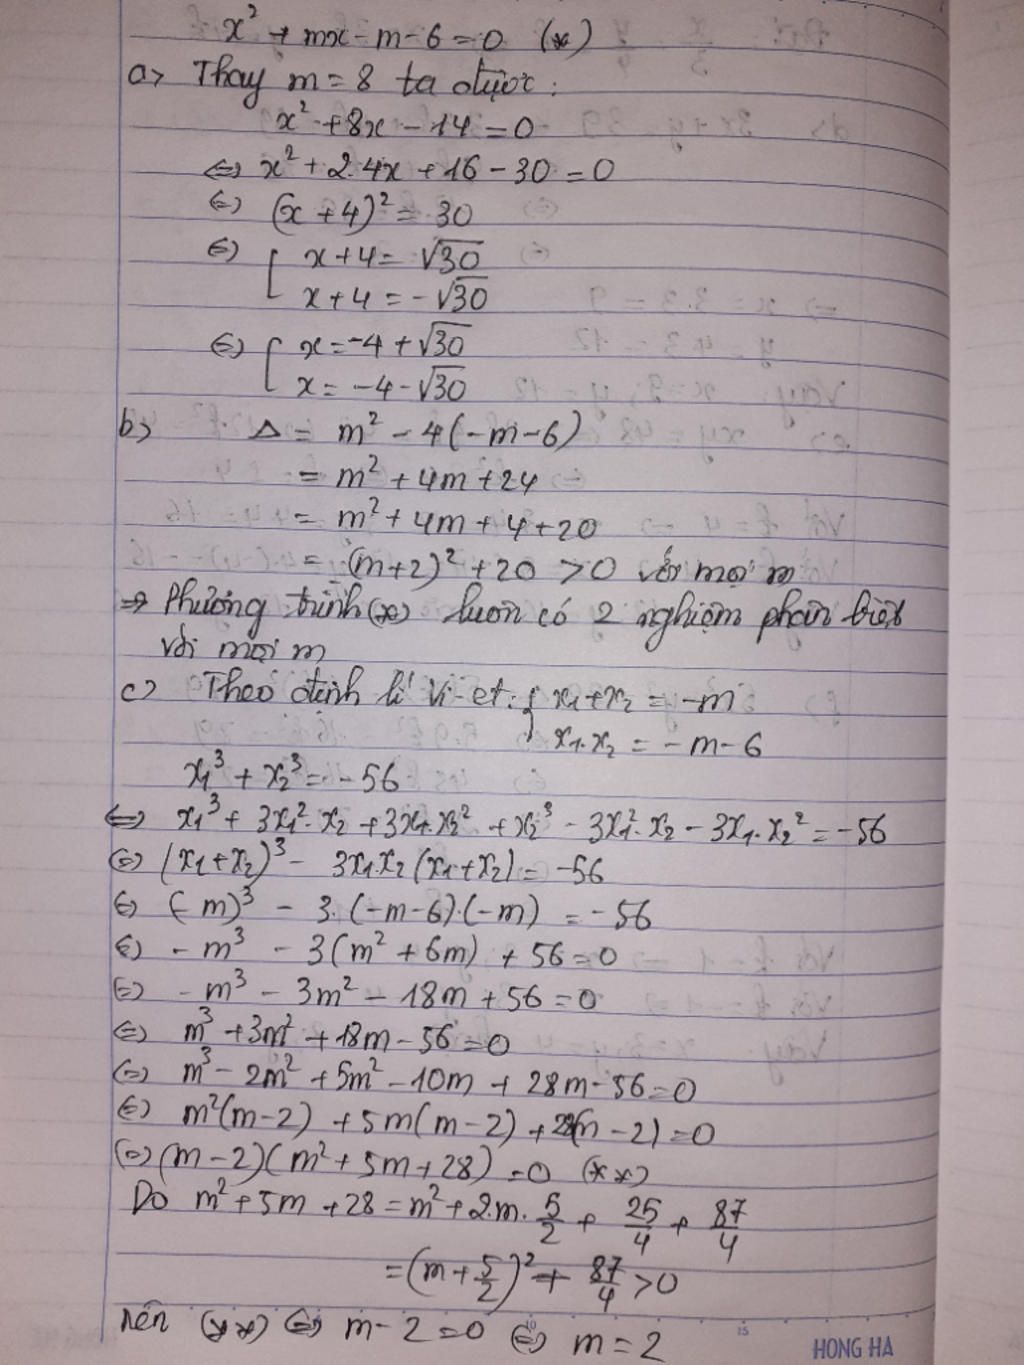 x² + mx - m - 6 = 0 (*)
a> Thay m = 8 ta được:
x² + 8x - 14 = 0
⇔ x² + 2.4x + 16 - 30 = 0
⇔ (x + 4)² = 30
⇔ [ x + 4 = √30
x + 4 = -√30
⇔ [ x = -4 + √30
x = -4 - √30
b> Δ = m² - 4(-m-6)
= m² + 4m + 24
= m² + 4m + 4 + 20
= (m+2)² + 20 > 0 với mọi m
⇒ Phương trình (*) luôn có 2 nghiệm phân biệt
với mọi m
c> Theo định lí Vi-et: { x₁ + x₂ = -m
x₁.x₂ = -m-6
x₁³ + x₂³ = -56
⇔ x₁³ + 3x₁².x₂ + 3x₁.x₂² + x₂³ - 3x₁².x₂ - 3x₁.x₂² = -56
⇔ (x₁+x₂)³ - 3x₁.x₂(x₁+x₂) = -56
⇔ (-m)³ - 3.(-m-6).(-m) = -56
⇔ -m³ - 3(m² + 6m) + 56 = 0
⇔ -m³ - 3m² - 18m + 56 = 0
⇔ m³ + 3m² + 18m - 56 = 0
⇔ m³ - 2m² + 5m² - 10m + 28m - 56 = 0
⇔ m²(m-2) + 5m(m-2) + 28(m-2) = 0
⇔ (m-2)(m² + 5m + 28) = 0 (**)
Do m² + 5m + 28 = m² + 2.m.5/2 + 25/4 + 87/4
= (m + 5/2)² + 87/4 > 0
nên (**) ⇔ m - 2 = 0 ⇔ m = 2
10 15 HONG HA